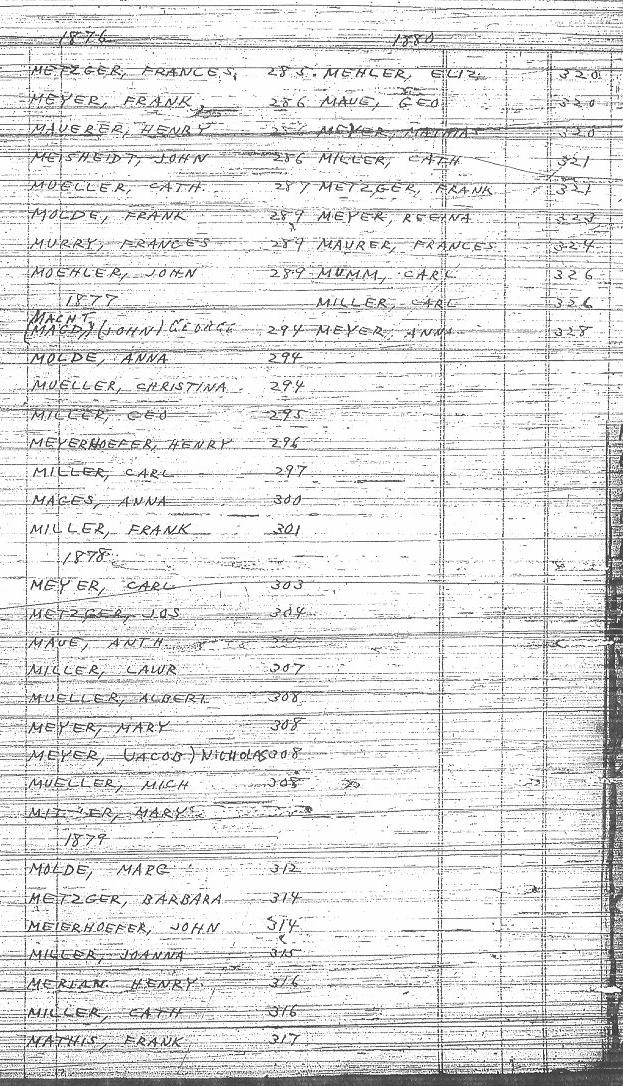 1876 1880
METZGER, FRANCES, 285. MEHLER, ELIZ 320
MEYER, FRANK 286 MAUE, GEO 320
MAUERER, HENRY 286 MEYER, MATHIAS 320
MEISHEIDT, JOHN 286 MILLER, CATH 321
MUELLER, CATH. 287 METZGER, FRANK 321
MOLDE, FRANK 289 MEYER, REGINA 323
MURRY, FRANCES 289 MAURER, FRANCES 324
MOEHLER, JOHN 289 MUMM, CARL 326
1877 MILLER, CARL 326
MACHT
(MACD,) (JOHN) GEORGE 294 MEYER, ANNA 328
MOLDE, ANNA 294
MUELLER, CHRISTINA 294
MILLER, GEO 295
MEYERHOEFER, HENRY 296
MILLER, CARL 297
MAGES, ANNA 300
MILLER, FRANK 301
1878
MEYER, CARL 303
METZGER, JOS 304
MAUE, ANTH
MILLER, LAWR 307
MUELLER, ALBERT 308
MEYER, MARY 308
MEYER, (JACOB) NICHOLAS 308
MUELLER, MICH 308
MARY
1879
MOLDE, MARG 312
METZGER, BARBARA 314
MEIERHOEFER, JOHN 314
MILLER, JOANNA 315
MERIAN. HENRY 316
MILLER, CATH 316
MATHIS, FRANK 317